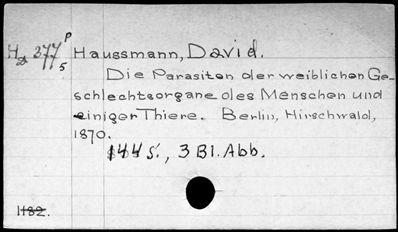 Hd 377 P 5 Haussmann, David.
Die Parasiten der weiblichen Ge-
schlechtsorgane des Menschen und
einiger Thiere. Berlin, Hirschwald,
1870.
144 S., 3 Bl. Abb.
1182.